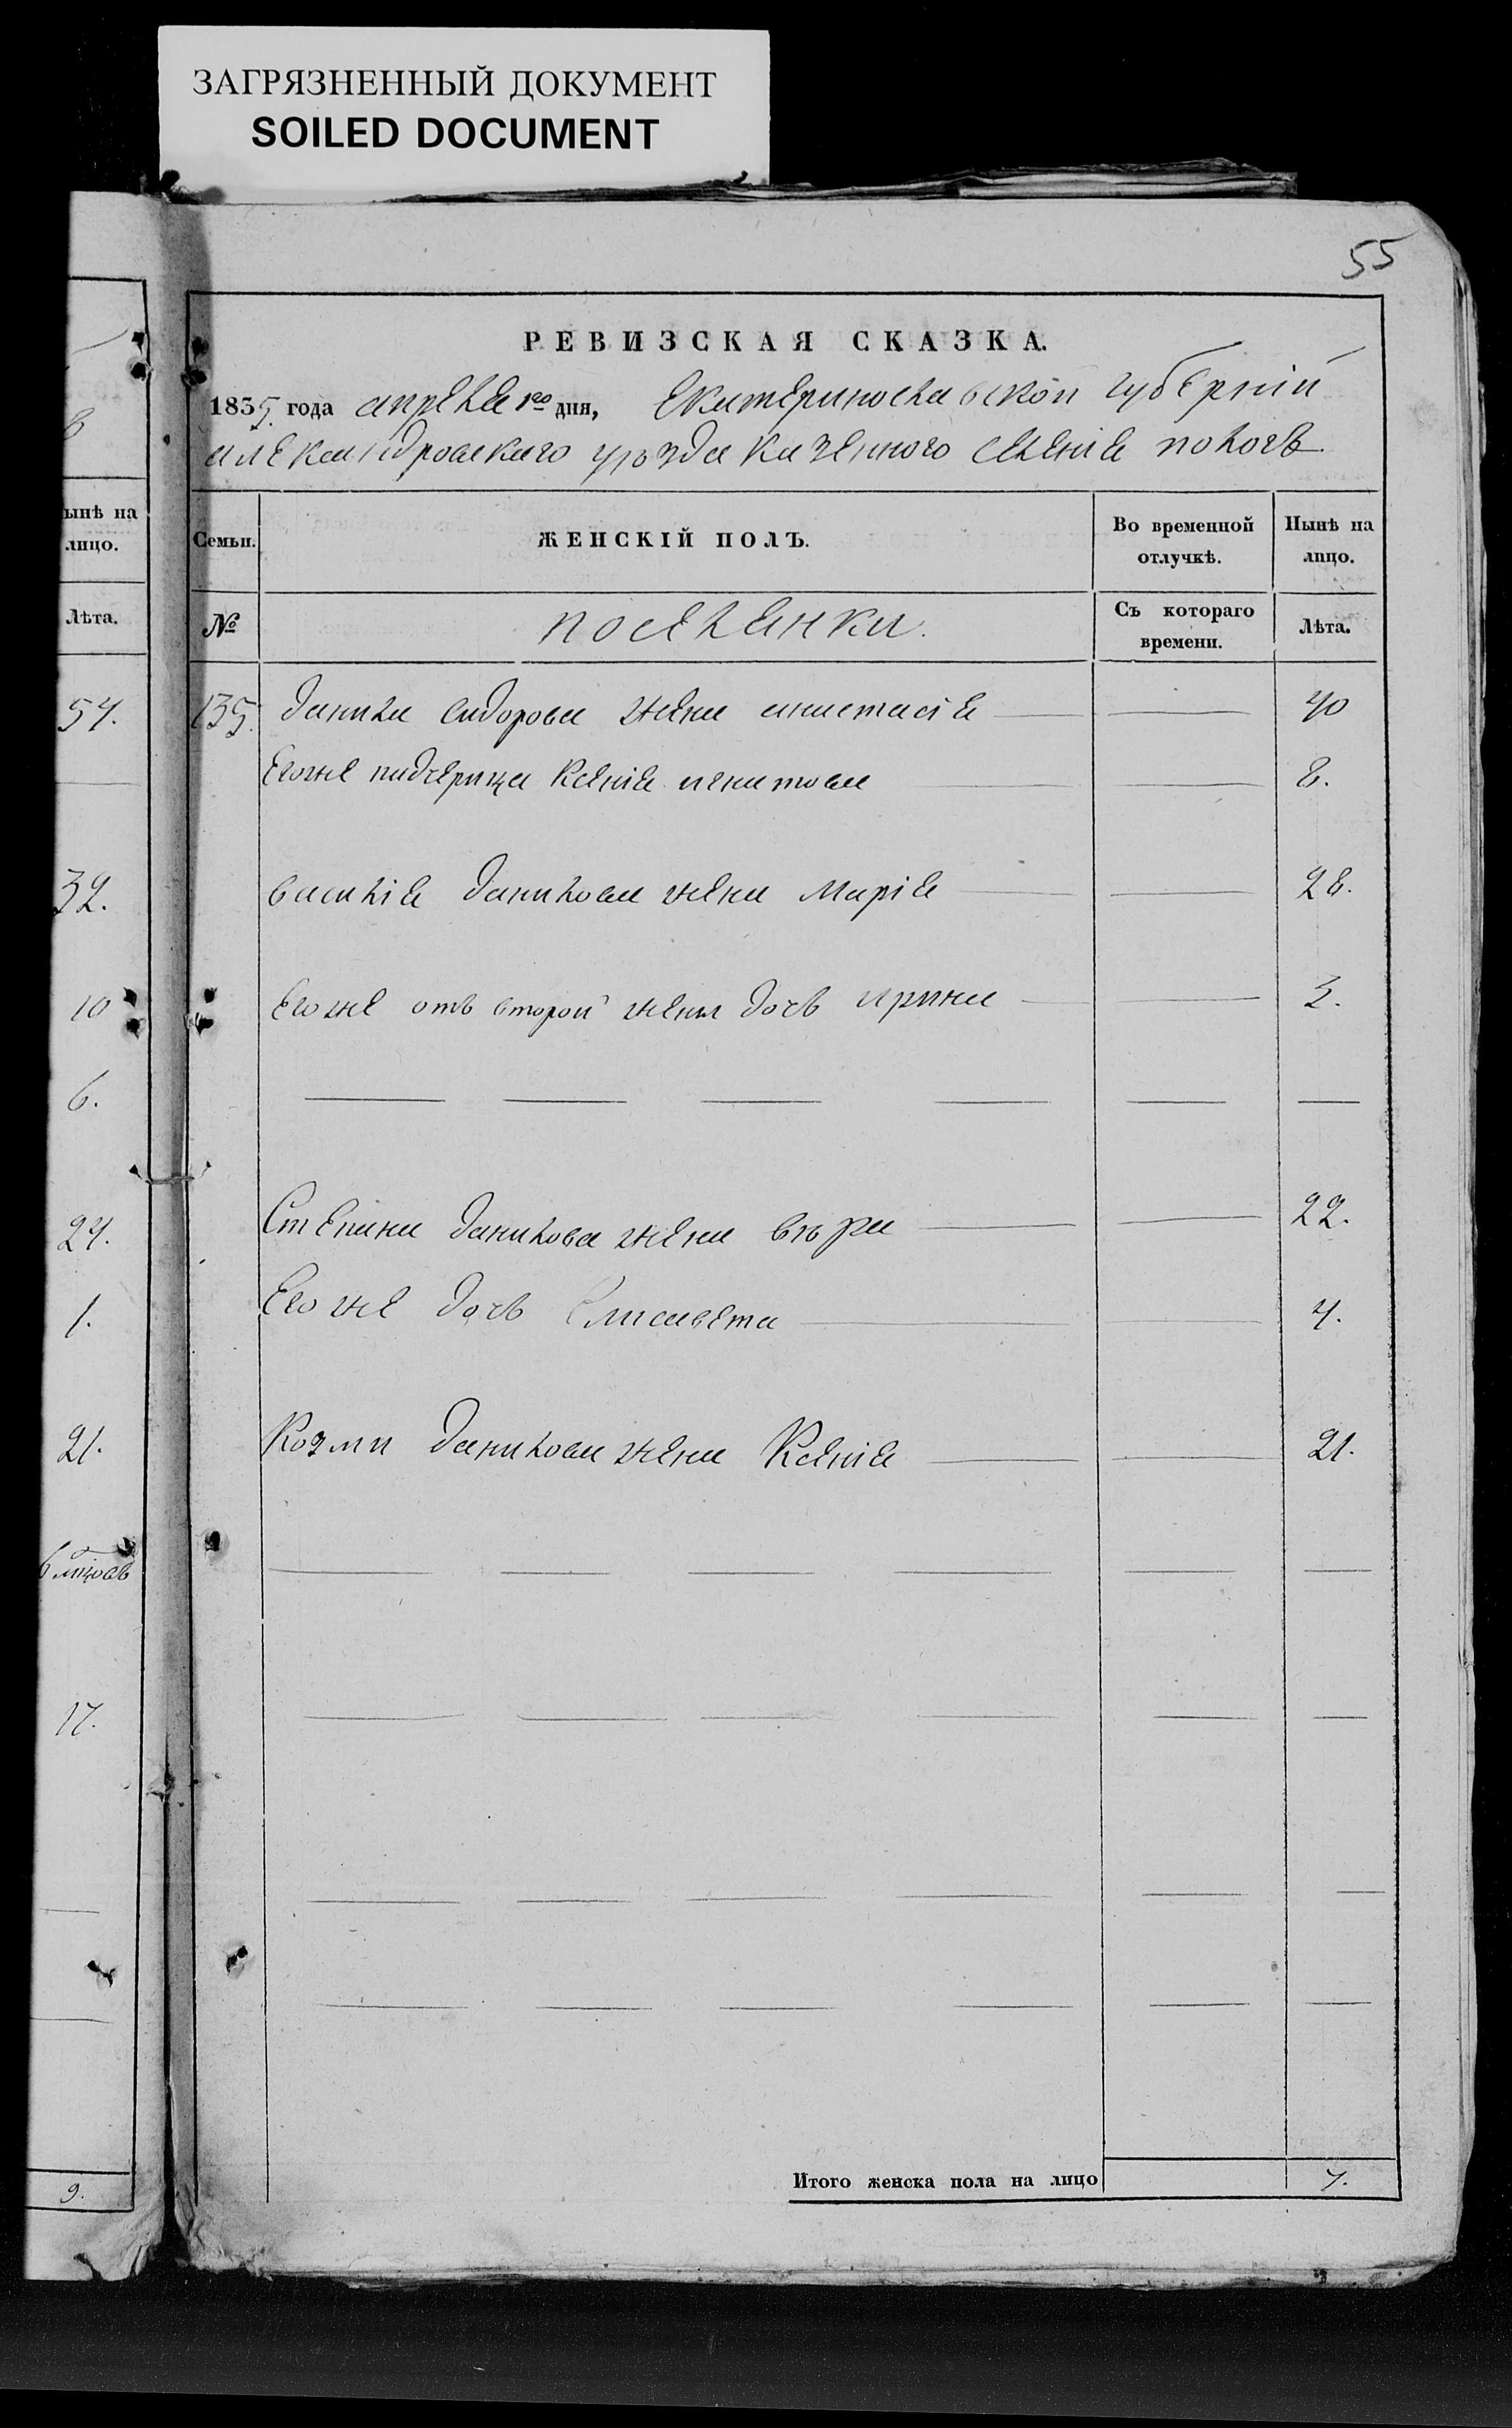 ЗАГРЯЗНЕННЫЙ ДОКУМЕНТ
SOILED DOCUMENT
55
РЕВИЗСКАЯ СКАЗКА.
1835 года апреля 1го дня, Екатеринославской губерніи
александровскаго уѣзда казенного селения пологъ
Семьи. ЖЕНСКІЙ ПОЛЪ. Во временной отлучкѣ. Нынѣ на лицо.
№ поселянки. Съ котораго времени. Лѣта.
135. данила сидорова жена анастасія 40
Егоже падчерица Ксенія игнатова 8.
василія данилова жена марія 28.
Егоже отъ второй жены дочь ирина 3.
Степана данилова жена вѣра 22.
Егоже дочь Елисавета 4.
Козми данилова жена Ксенія 21.
Итого женска пола на лицо 7.
ынѣ на
лицо.
Лѣта.
54.
32.
10
6.
24.
1.
21.
17.
9.